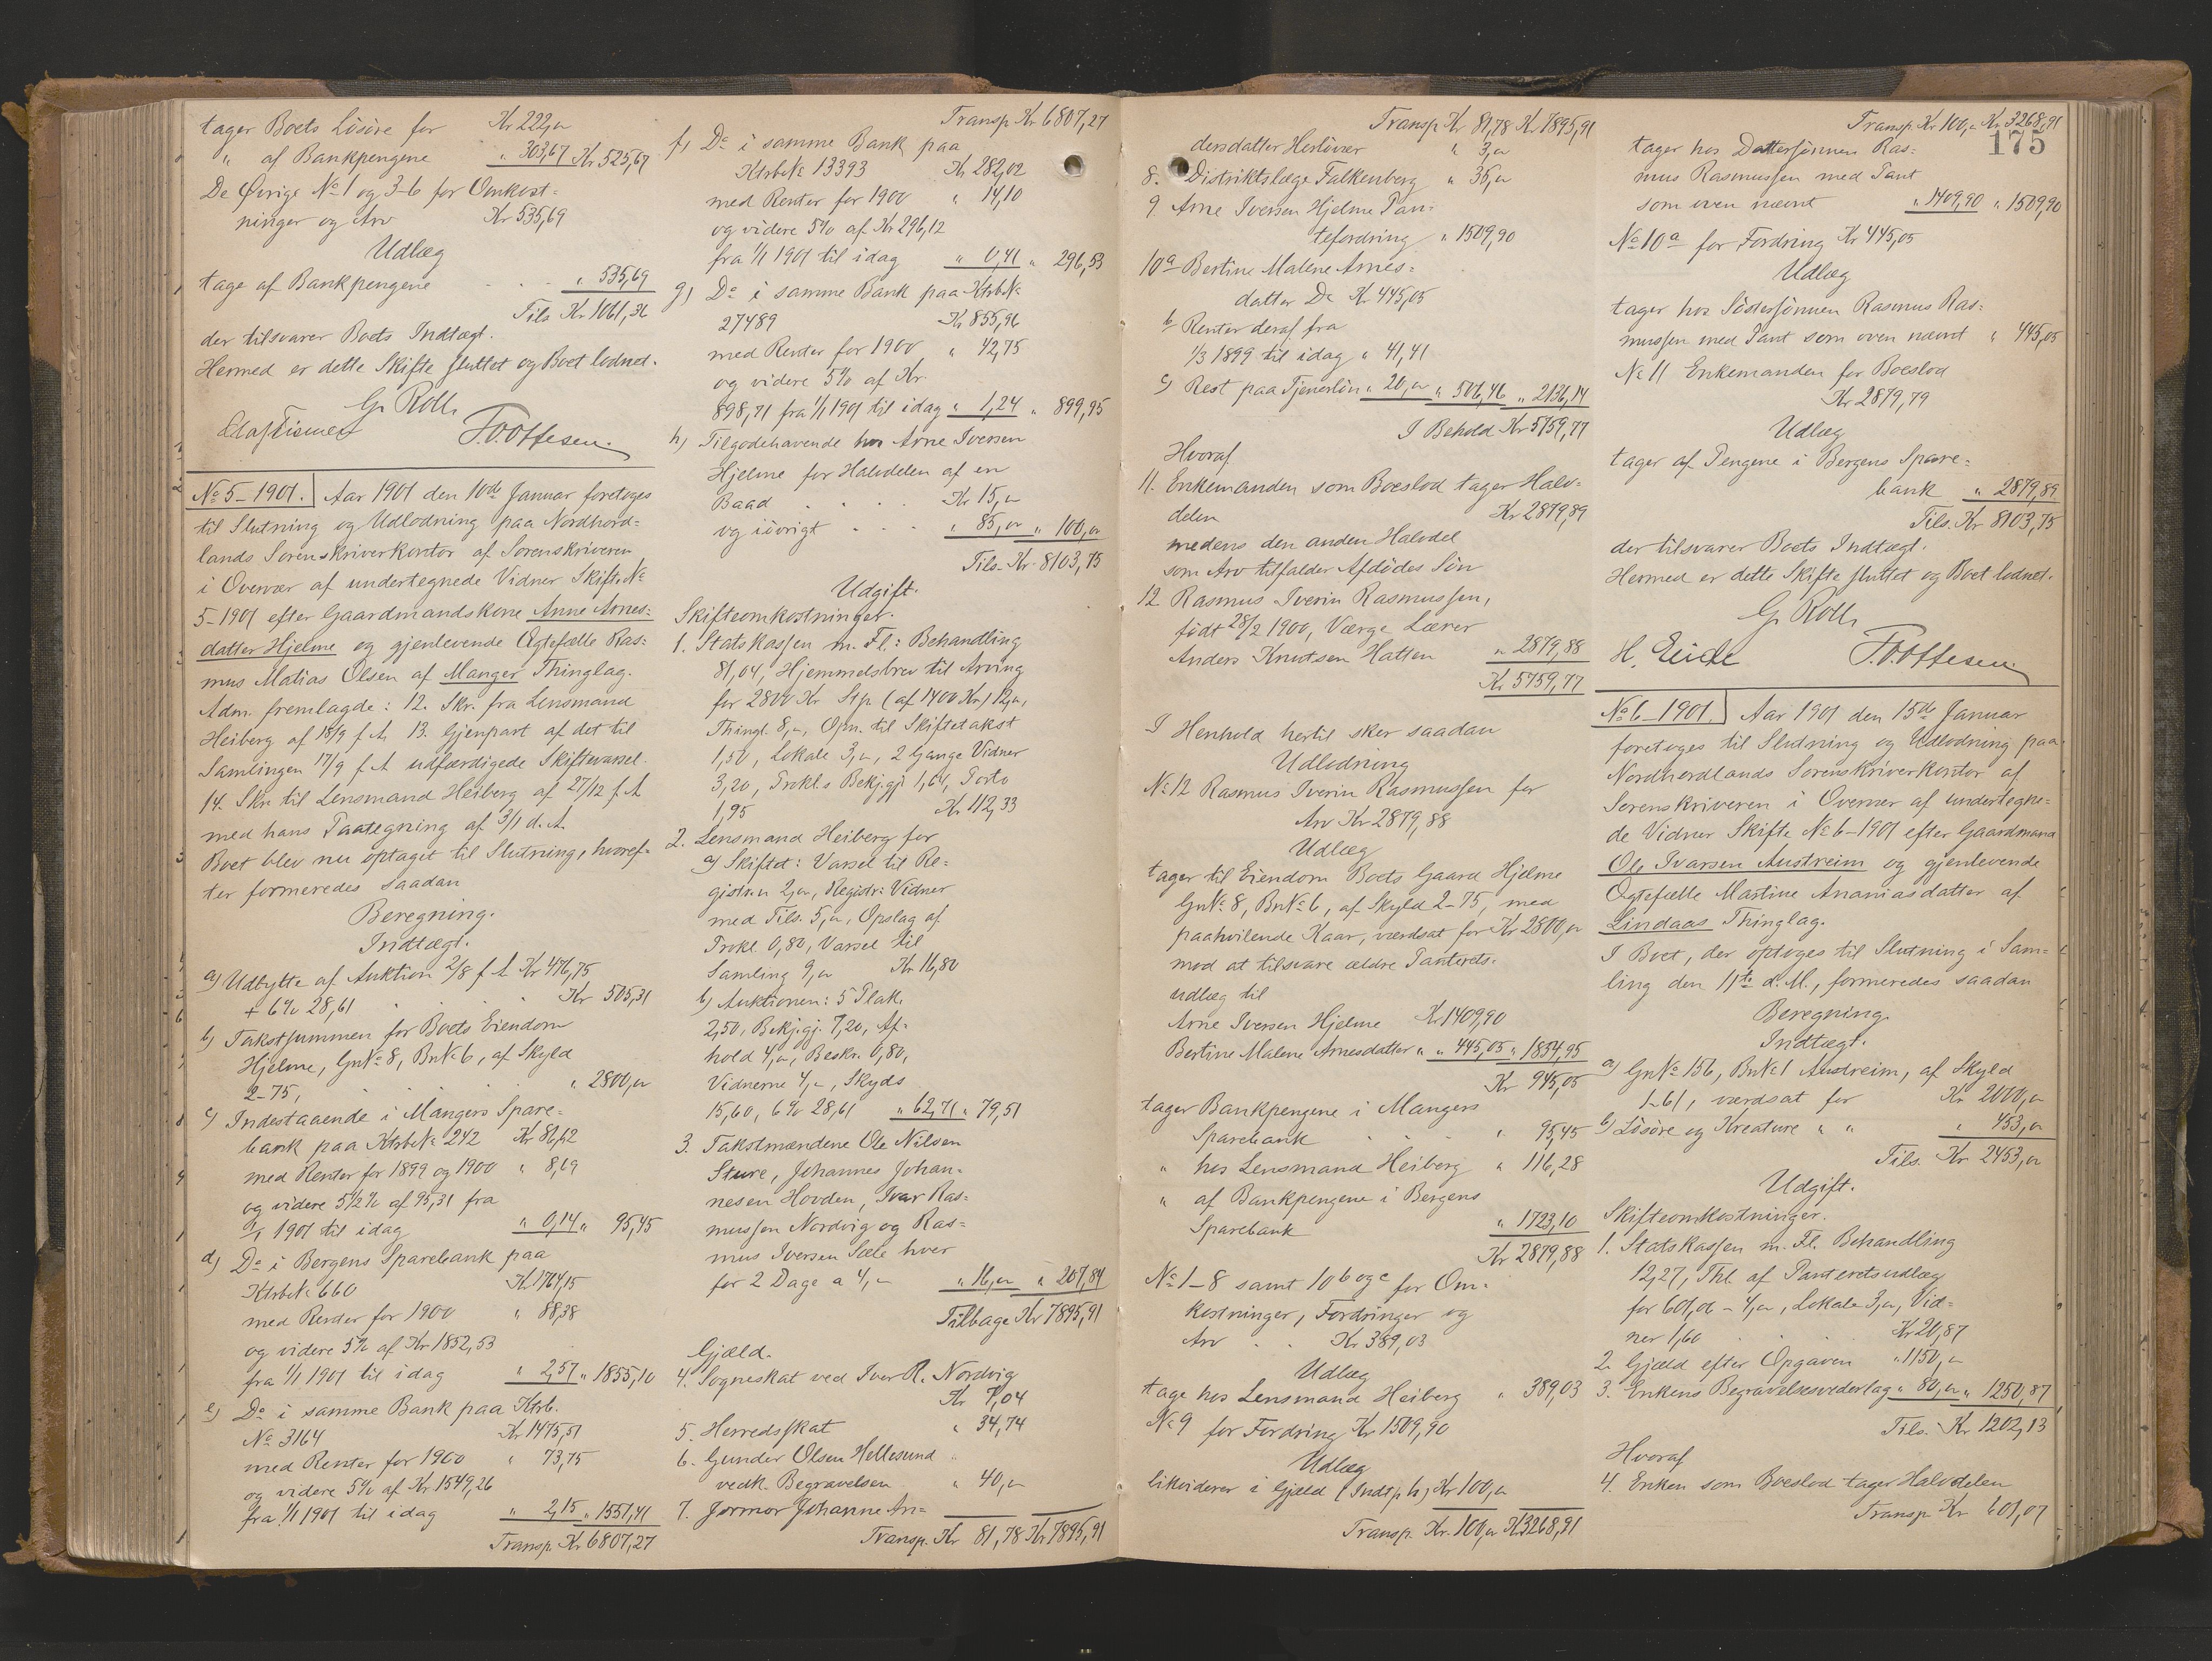 tager Boets Løsøre for Kr 222,"
" af Bankpengene " 303,67 Kr 525,67
De Øvrige No 1 og 3-6 for Omkost=
ninger og Arv Kr 535,69
Udlæg
tage af Bankpengene . . . " 535,69
Tils Kr 1061,36
der tilsvarer Boets Indtægt.
Hermed er dette Skifte sluttet og Boet lodnet.
G. Roll
F.O. Offesen.
No 5-1901. Aar 1901 den 10de Januar foretoges
til Slutning og Udlodning paa Nordhord=
lands Sorenskriverkontor af Sorenskriveren
i Overvær af undertegnede Vidner Skifte No
5-1901 efter Gaardmandskone Anne Arnes=
datter Hjelme og gjenlevende Ægtefælle Ras=
mus Matias Olsen af Manger Thinglag.
Adm. fremlagde: 12. Skr. fra Lensmand
Heiberg af 18/9 f A. 13. Gjenpart af det til
Samlingen 17/9 f A udfærdigede Skiftevarsel.
14. Skr. til Lensmand Heiberg af 27/12 f. A
med hans Paategning af 3/1 d. A.
Boet blev nu optaget til Slutning, hvoref=
ter formeredes saadan
Beregning.
Indtægt.
a) Udbytte af Auktion 2/8 f A Kr 476,75
+ 6% 28,61 . . . Kr 505,31
b) Takstsummen for Boets Eiendom
Hjelme, GnNo 8, BnNo 6, af Skyld
2-75, . . . " 2800,"
c) Indestaaende i Mangers Spare=
bank paa KtrbNo 242 Kr 86,62
med Renter for 1899 og 1900 " 8,69
og videre 5 1/2 % af 95,31 fra
1/1 1901 til idag " 0,14 " 95,45
d) Do i Bergens Sparebank paa
KtrbNo 660 Kr 1764,15
med Renter for 1900 " 88,38
og videre 5% af Kr 1852,53
fra 1/1 1901 til idag " 2,57 " 1855,10
e) Do i samme Bank paa Ktrb.
No 3164 Kr 1475,51
med Renter for 1900 " 73,75
og videre 5% af Kr 1549,26
fra 1/1 1901 til idag " 2,15 " 1551,41
Transp. Kr 6807,27
Transp. Kr 6807,27
f) Do i samme Bank paa
KtrbNo 13393 Kr 282,02
med Renter for 1900 " 14,10
og videre 5% af Kr 296,12
fra 1/1 1901 til idag " 0,41 " 296,53
g) Do i samme Bank paa KtrbNo
27489 Kr 855,96
med Renter for 1900 " 42,75
og videre 5% af Kr
898,71 fra 1/1 1901 til idag " 1,24 " 899,95
h) Tilgodehavende hos Arne Iversen
Hjelme for Halvdelen af en
Baad . . . Kr 15,"
og iøvrigt . . . " 85," " 100,"
Tils. Kr. 8103,75
Udgift.
Skifteomkostninger.
1. Statskassen m. Fl.: Behandling
81,04, Hjemmelsbrev til Arving
for 2800 Kr Stp. (af 1400 Kr) 12,",
Thingl. 8,", Opn. til Skiftetakst
1,50, Lokale 3,", 2 Gange Vidner
3,20, Prokl.s Bekj.gj. 1,64, Porto
1,95 Kr 112,33
2. Lensmand Heiberg for
a) Skiftet: Varsel til Re=
gistr.n 2,", Registr: Vidner
med Tils. 5,", Opslag af
Prokl 0,80, Varsel til
Samling 9," Kr 16,80
b) Auktionen: 5 Plak.
2,50, Bekj.gj. 7,20, Af=
hold 4,", Beskr. 0,80,
Vidnerne 4,", Skyds
15,60, 6% 28,61 " 62,71 " 79,51
3. Takstmændene Ole Nilsen
Sture, Johannes Johan=
nesen Hovden, Ivar Ras=
mussen Nordvig og Ras=
mus Iversen Sæle hver
for 2 Dage a 4," " 16," " 207,84
Tilbage Kr 7895,91
Gjæld.
4. Sogneskat ved Iver R. Nordvig
Kr 7,04
5. Herredsskat " 34,74
6. Gunder Olsen Hellesund
vedk. Begravelsen " 40,"
7. Jormor Johanne An=
Transp. Kr 81,78 Kr 7895,91
Transp. Kr 81,78 Kr 7895,91
dersdatter Herløvær " 3,"
8. Distriktslæge Falkenberg " 36,"
9. Arne Iversen Hjelme Pan=
tefordring " 1509,90
10a Bertine Malene Arnes=
datter Do Kr 445,05
b Renter deraf fra
1/3 1899 til idag " 41,41
c) Rest paa Tjenerløn " 20," " 506,46 " 2136,14
I Behold Kr 5759,77
Hvoraf
11. Enkemanden som Boeslod tager Halv=
delen Kr 2879,89
medens den anden Halvdel
som Arv tilfalder Afdødes Søn
12 Rasmus Iverin Rasmussen,
født 28/2 1900, Værge Lærer
Anders Knutsen Hatten " 2879,88
Kr 5759,77
I Henhold hertil sker saadan
Udlodning
No 12 Rasmus Iverin Rasmussen for
Arv Kr 2879,88
Udlæg
tager til Eiendom Boets Gaard Hjelme
GnNo 8, BnNo 6, af Skyld 2-75, med
paahvilende Kaar, værdsat for Kr 2800,"
mod at tilsvare ældre Panterets=
udlæg til
Arne Iversen Hjelme Kr 1409,90
Bertine Malene Arnesdatter " " 445,05 " 1854,95
Kr 945,05
tager Bankpengene i Mangers
Sparebank . . . " 95,45
" hos Lensmand Heiberg " 116,28
" af Bankpengene i Bergens
Sparebank " 1723,10
Kr 2879,88
No 1-8 samt 10 b og c for Om=
kostninger, Fordringer og
Arv . . Kr 389,03
Udlæg
tage hos Lensmand Heiberg " 389,03
No 9 for Fordring Kr 1509,90
Udlæg
likviderer i Gjæld (Indt.p. h) Kr 100,"
Transp. Kr. 100," Kr 3268,91
175
Transp. Kr 100," Kr 3268,91
tager hos Dattersønnen Ras=
mus Rasmussen med Pant
som oven nævnt " 1409,90 " 1509,90
No 10a for Fordring Kr 445,05
Udlæg
tager hos Søstersønnen Rasmus Ras=
mussen med Pant som oven nævnt " 445,05
No 11 Enkemanden for Boeslod
Kr 2879,79
Udlæg
tager af Pengene i Bergens Spare=
bank " 2879,89
Tils. Kr 8103,75
der tilsvarer Boets Indtægt.
Hermed er dette Skifte sluttet og Boet lodnet.
G. Roll
H. Eide F.O. Offesen
No 6-1901. Aar 1901 den 15de Januar
foretoges til Slutning og Udlodning paa
Nordhordlands Sorenskriverkontor af
Sorenskriveren i Overvær af undertegne=
de Vidner Skifte No 6-1901 efter Gaardmand
Ole Ivarsen Austreim og gjenlevende
Ægtefælle Martine Ananiasdatter af
Lindaas Thinglag.
I Boet, der optoges til Slutning i Sam=
ling den 11te d. M., formeredes saadan
Beregning.
Indtægt.
a) GnNo 156, BnNo 1 Austreim, af Skyld
1-61, værdsat for Kr 2000,"
b) Løsøre og Kreature " " " 453,"
Tils. Kr 2453,"
Udgift.
Skifteomkostninger.
1. Statskassen m. Fl. Behandling
12,27, Thl. af Panteretsudlæg
for 601,06 - 4,", Lokale 3,", Vid=
ner 1,60 . . Kr 20,87
2. Gjæld efter Opgaven " 1150,"
3. Enkens Begravelsesvederlag " 80," " 1250,87
Tils. Kr 1202,13
Hvoraf
4. Enken som Boeslod tager Halvdelen
Transp. Kr 601,07